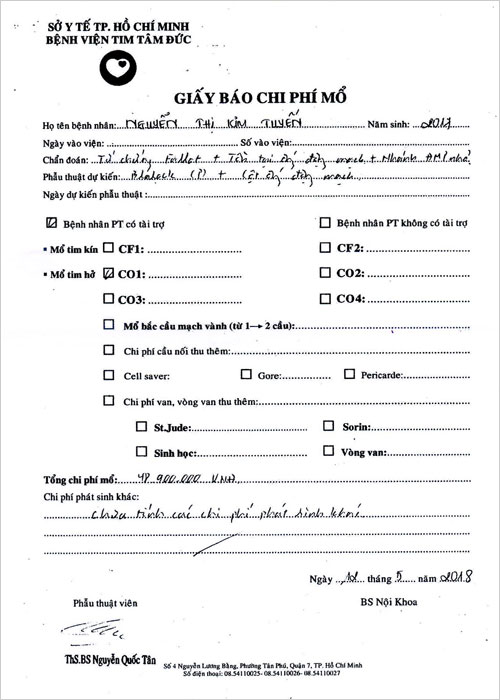 SỞ Y TẾ TP. HỒ CHÍ MINH
BỆNH VIỆN TIM TÂM ĐỨC
GIẤY BÁO CHI PHÍ MỔ
Họ tên bệnh nhân: NGUYỄN THỊ KIM TUYẾN Năm sinh: 2017
Ngày vào viện: Số vào viện:
Chẩn đoán: Tứ chứng Fallot + Tồn tại ống động mạch + Nhánh ĐMP nhỏ
Phẫu thuật dự kiến: Blalock (P) + cột ống động mạch
Ngày dự kiến phẫu thuật :
Bệnh nhân PT có tài trợ Bệnh nhân PT không có tài trợ
Mổ tim kín CF1: CF2:
Mổ tim hở CO1: CO2:
CO3: CO4:
Mổ bắc cầu mạch vành (từ 1→ 2 cầu):
Chi phí cầu nối thu thêm:
Cell saver: Gore: Pericarde:
Chi phí van, vòng van thu thêm:
St.Jude: Sorin:
Sinh học: Vòng van:
Tổng chi phí mổ: 48 900.000 VNĐ
Chi phí phát sinh khác:
chưa tính các chi phí phát sinh khác
Ngày 12 tháng 5 năm 2018
Phẫu thuật viên BS Nội Khoa
ThS.BS Nguyễn Quốc Tân
Số 4 Nguyễn Lương Bằng, Phường Tân Phú, Quận 7, TP. Hồ Chí Minh
Số điện thoại: 08.54110025- 08.54110026- 08.54110027